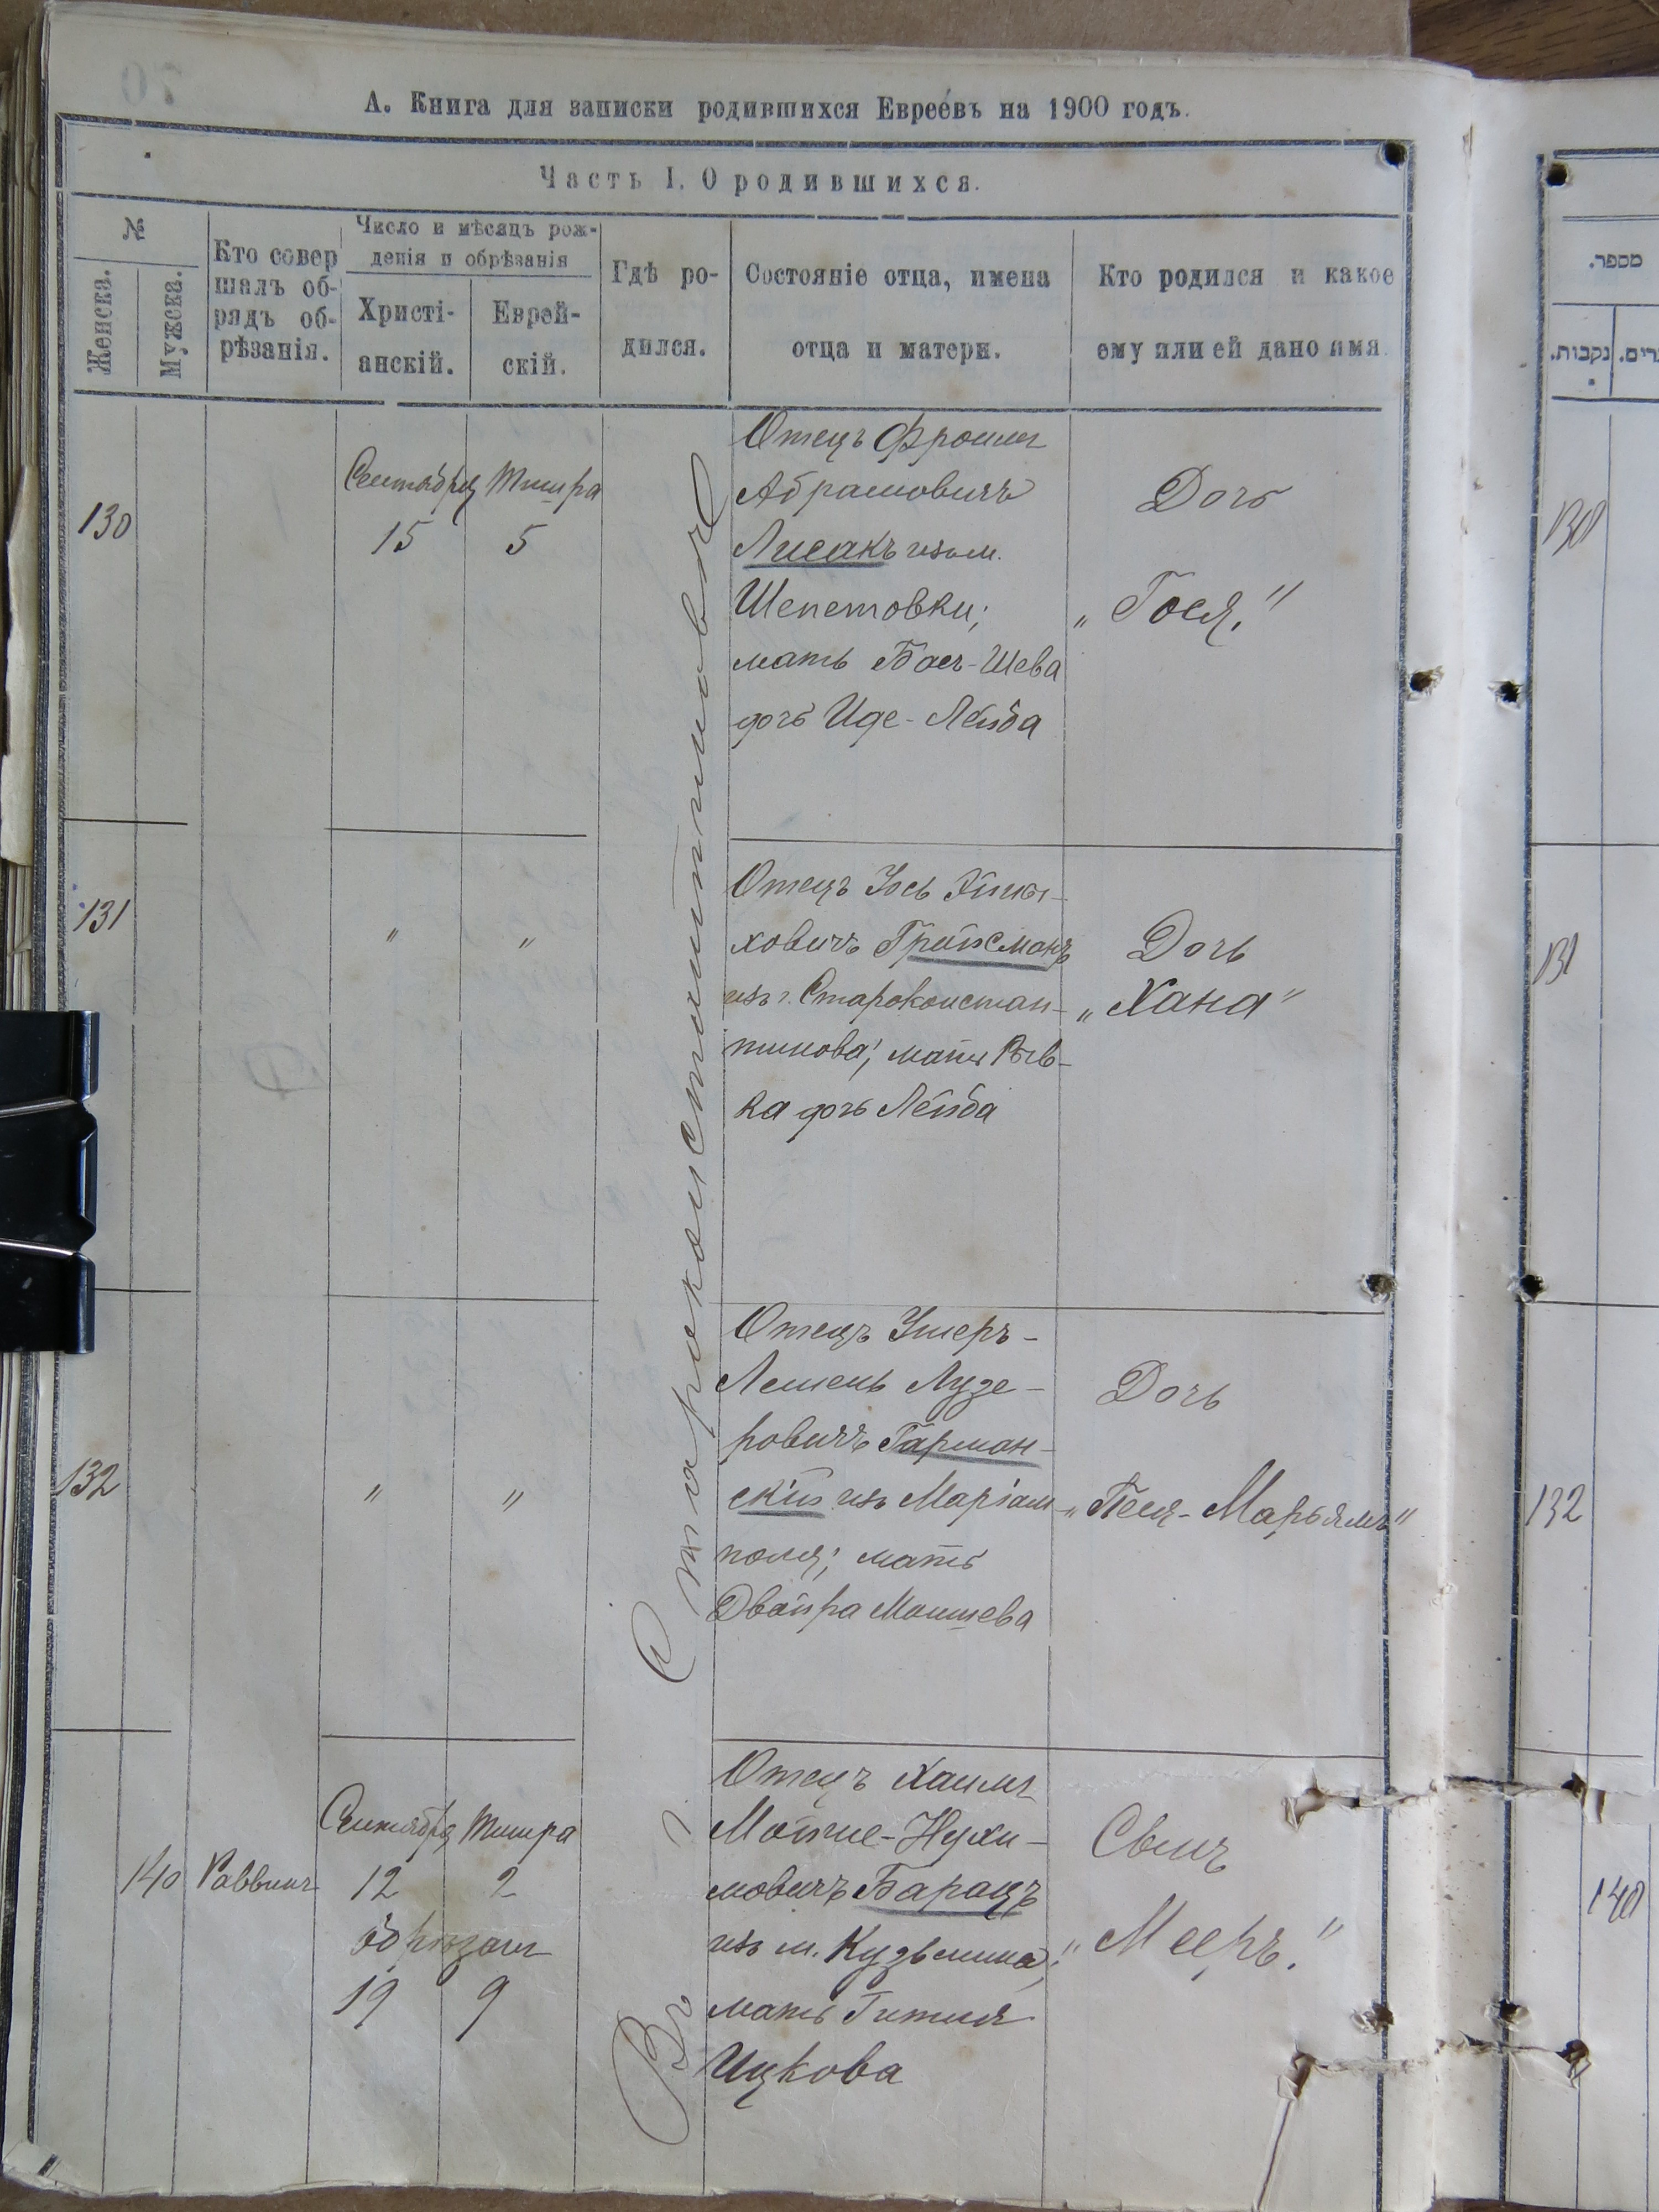 А. Книга для записки родившихся Евреевъ на 1900 годъ.
Часть I. О родившихся.
№
Женска.
Мужска.
Кто совер
шалъ об-
рядъ об-
рѣзанія.
Число и мѣсяцъ рож-
денія и обрѣзанія
Христі-
анскій.
Еврей-
скій.
Гдѣ ро-
дился.
Состояніе отца, имена
отца и матери.
Кто родился и какое
ему или ей дано имя.
מספר.
נקבות.
Въ г. Староконстантиновѣ
130
Сентября Тишра
15 5
Отецъ Фроимъ
Абрамовичъ
Лисакъ изъ м.
Шепетовки;
мать Бас-Шева
дочь Иде-Лейба
Дочь
„Гося."
130
131
" "
Отецъ Іось
ховичъ Грайсманъ
изъ г. Староконстан-
тинова; мать Рив-
ка дочь Лейба
Дочь
„Хана"
131
132
" "
Отецъ Ушеръ-
Лемель Лузе-
ровичъ Гарман-
скій изъ Маріам-
поля; мать
Двойра Мошева
Дочь
„Песя-Марьямъ"
132
140 Раввинъ
Сентября Тишра
12 2
обрѣзанъ
19 9
Отецъ Хаимъ
Мойше-Нухи-
мовичъ Барацъ
изъ м. Кузьмина;
мать Гитля
Ицкова
Сынъ
„Мееръ."
140